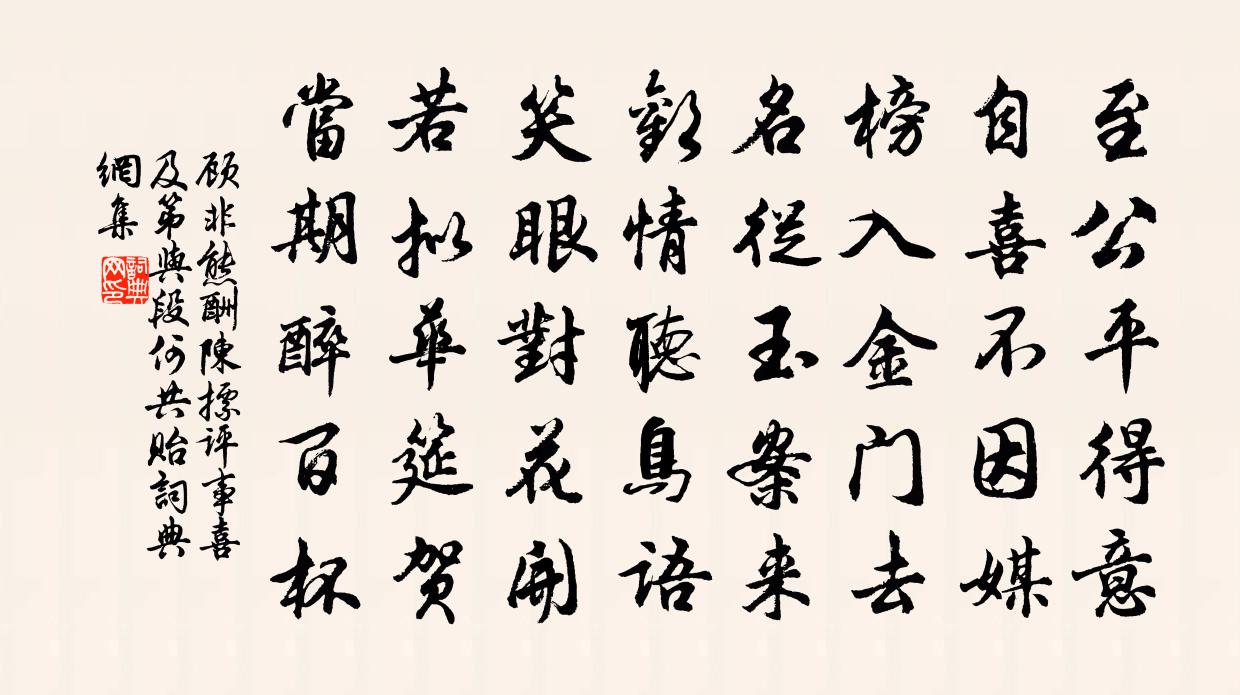 至公平得意
自喜不因媒
榜入金门去
名從玉案来
歡情聽鳥語
笑眼對花開
若拟華筵贺
當期醉百杯
顾非熊酬陳摽评事喜
及第與段何共贻詞典
網集
詞典网印